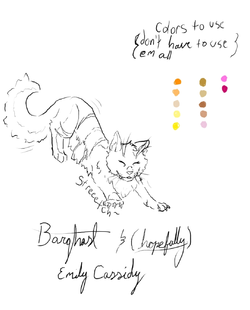 Colors to use
{don't have to use}
{em all
Strecc
ch~
Barghast & (hopefully)
Emily Cassidy